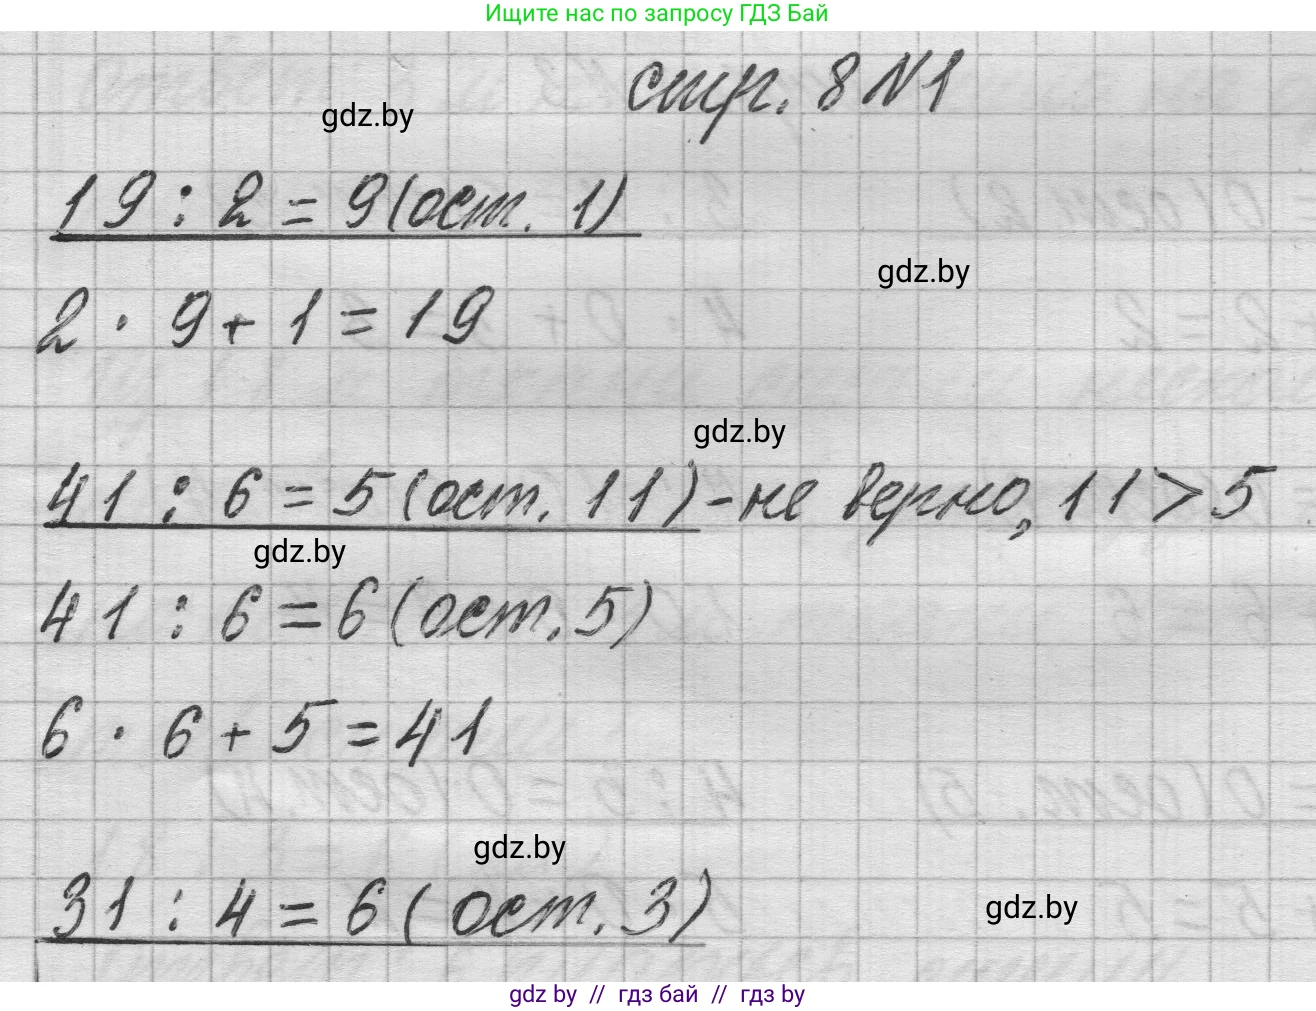 Ищите нас по запросу ГДЗ Бай
стр. 8 N1
gdz.by
19 : 2 = 9 (ост. 1)
gdz.by
2 · 9 + 1 = 19
gdz.by
41 : 6 = 5 (ост. 11) - не верно, 11 > 5
gdz.by
41 : 6 = 6 (ост. 5)
6 · 6 + 5 = 41
gdz.by
31 : 4 = 6 (ост. 3)
gdz.by
gdz by // гдз бай // гдз by